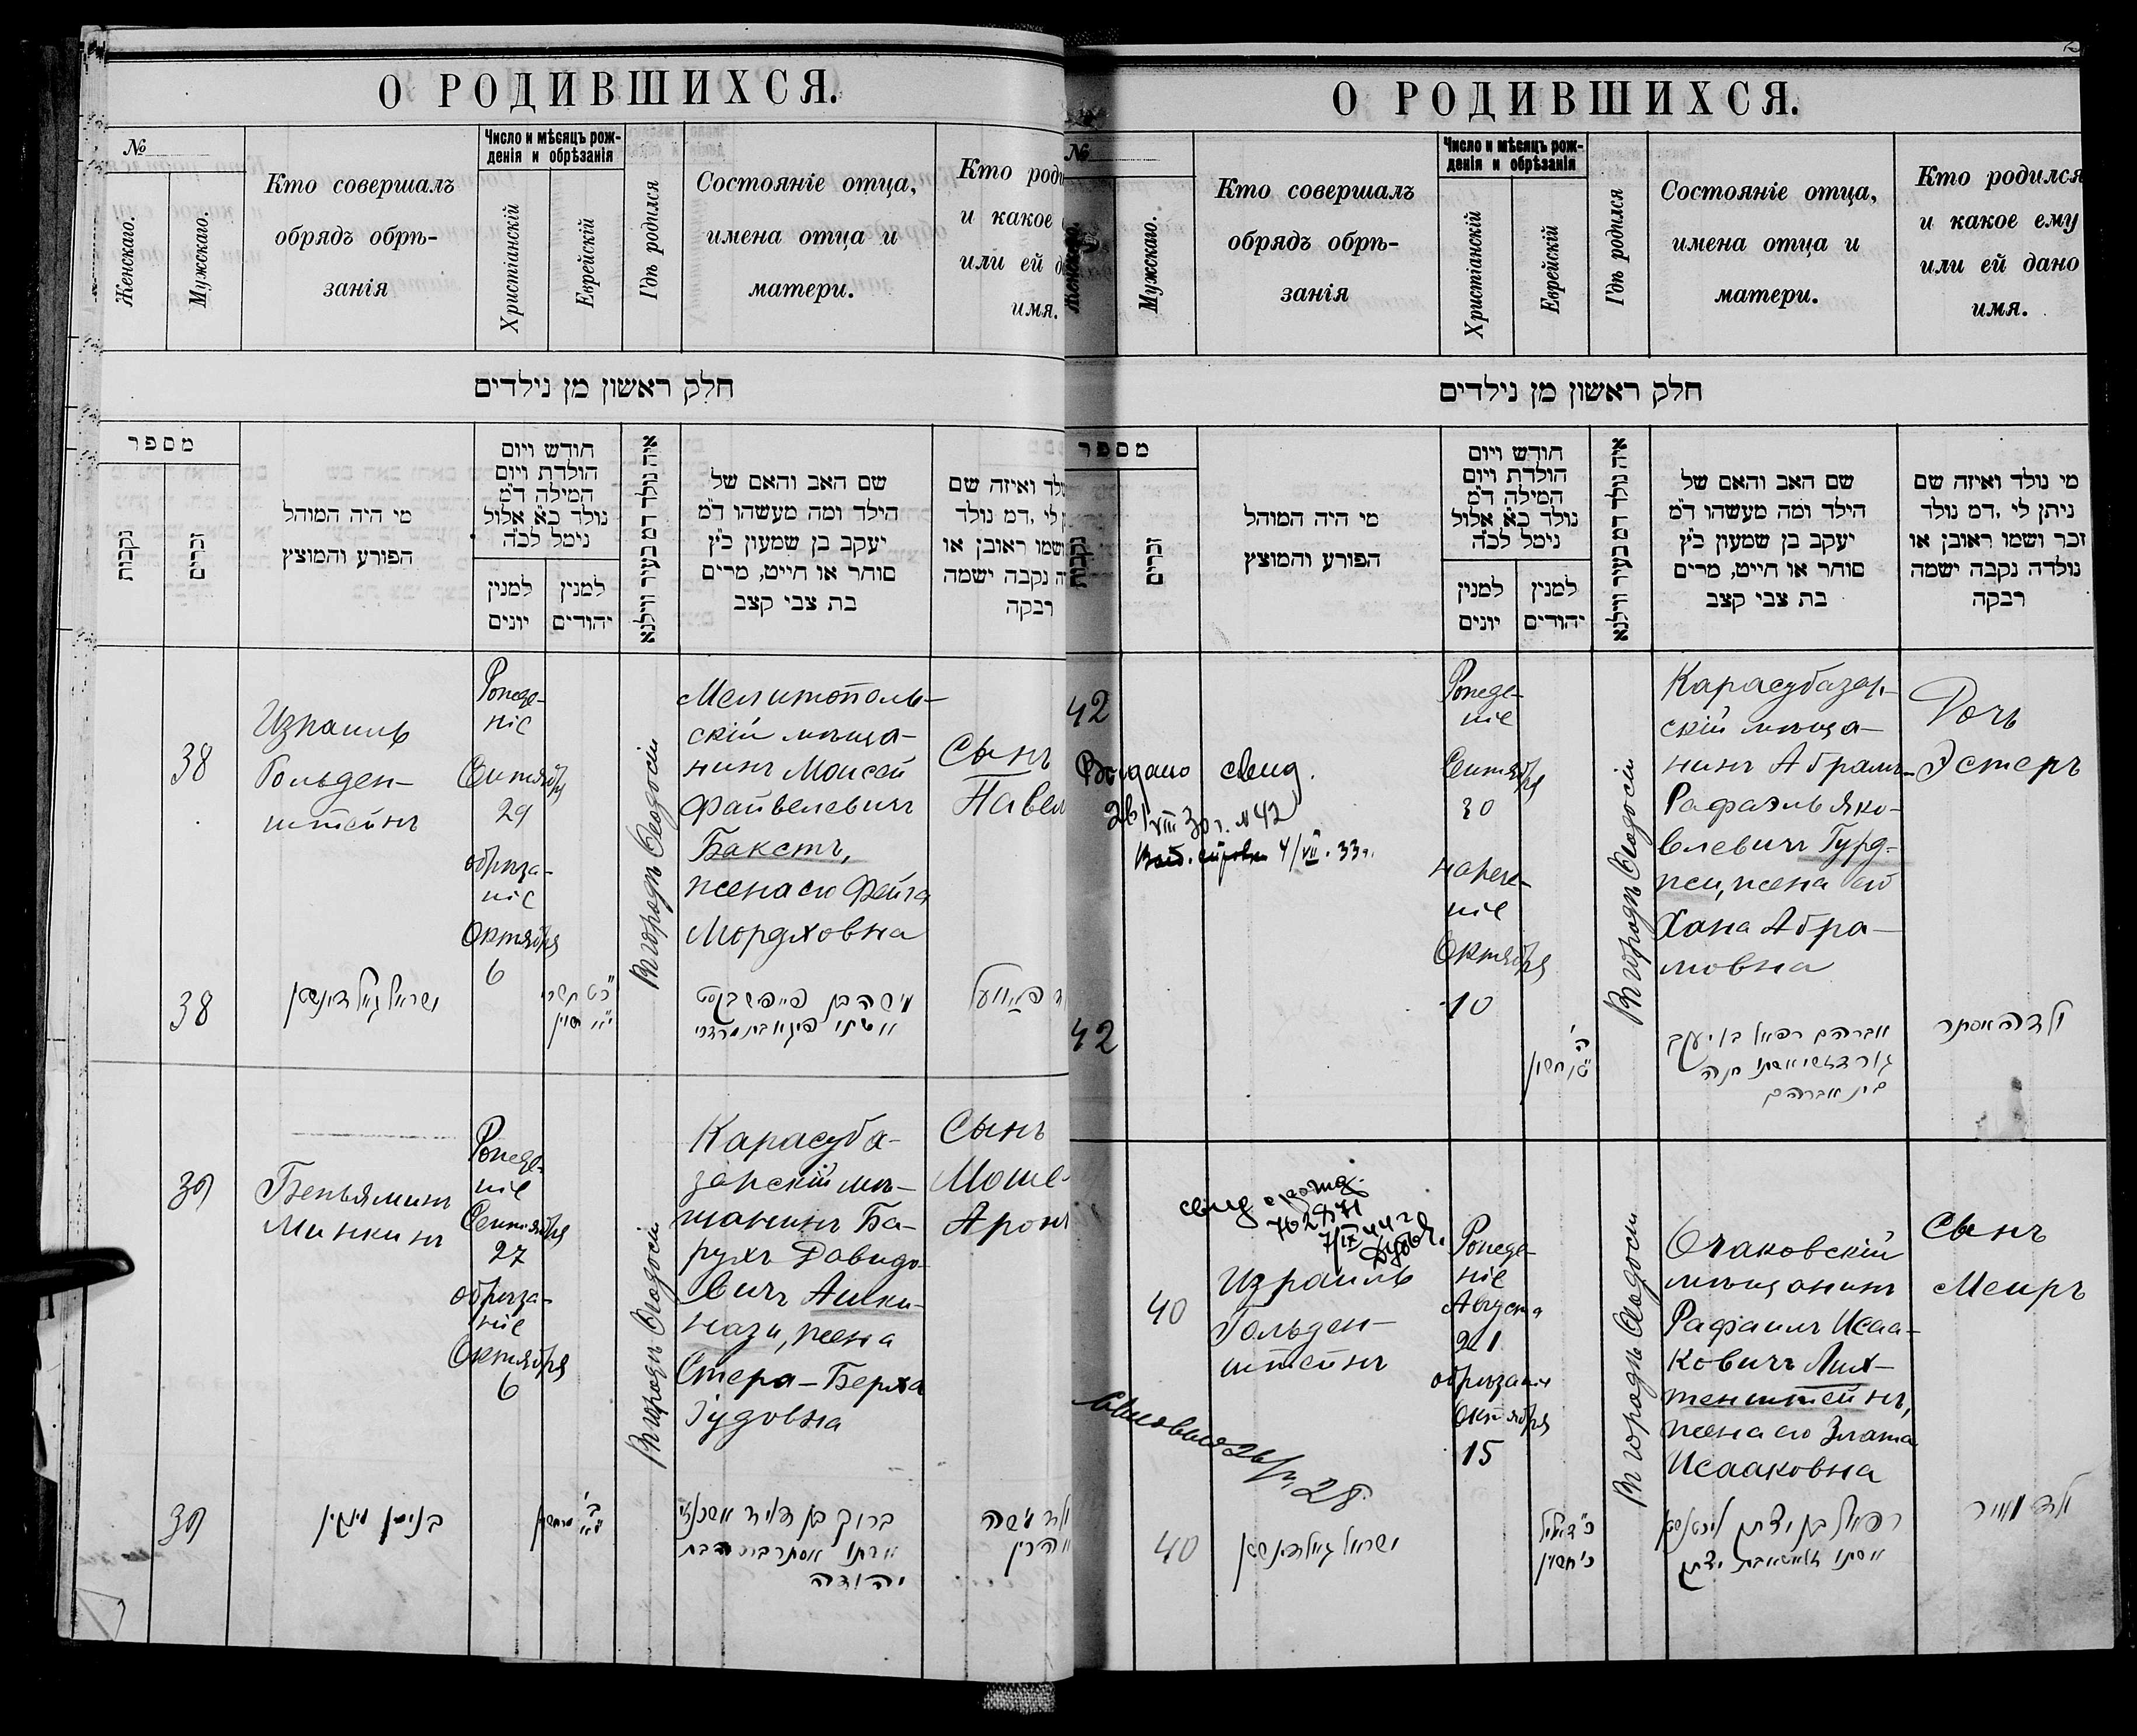 О РОДИВШИХСЯ.
№
Женскаго.
Мужскаго.
Кто совершалъ
обрядъ обрѣ-
занія
Число и мѣсяцъ рож-
денія и обрѣзанія
Христіанскій
Еврейскій
Гдѣ родился
Состояніе отца,
имена отца и
матери.
Кто роди
и какое
или ей д
имя.
חלק ראשון מן נילדים
מספר
נקבות
זכרים
מי היה המוהל
הפורע והמוצץ
חודש ויום
הולדת ויום
המילה ד״מ
נולד כ״א אלול
נימל לכ״ה
למנין
יונים
למנין
יהודים
איה נולד דמ בעיר ווילנא
שם האב והאם של
הילד ומה מעשהו ד״מ
יעקב בן שמעון כ״ץ
סוחר או חייט, מרים
בת צבי קצב
לד ואיזה שם
לי ,דמ נולד
ושמו ראובן או
ה נקבה ישמה
רבקה
38
Израиль
Гольден-
штейнъ
Рожде-
ніе
Сентября
29
обрѣза-
ніе
Октября
6
Въ городѣ Ѳеодосіи
Мелитополь-
скій мѣща-
нинъ Моисей
Файвелевичъ
Бакстъ,
жена его Фейга
Мордховна
Сынъ
Павел
38
39
Беньяминъ
Минкинъ
Рожде-
ніе
Сентября
27
обрѣза-
ніе
Октября
6
Въ городѣ Ѳеодосіи
Карасуба-
зарскій мѣ-
щанинъ Ба-
рухъ Давидо-
вичъ Ашки-
нази, жена
Стера-Берха
Іудовна
Сынъ
Моше-
Аронъ
39
בנימן מינקין
ברוך בן דוד אשכנזי
יהודה
ולד משה
אהרן
О РОДИВШИХСЯ.
№
Женскаго.
Мужскаго.
Кто совершалъ
обрядъ обрѣ-
занія
Число и мѣсяцъ рож-
денія и обрѣзанія
Христіанскій
Еврейскій
Гдѣ родился
Состояніе отца,
имена отца и
матери.
Кто родился
и какое ему
или ей дано
имя.
חלק ראשון מן נילדים
מספר
נקבות
זכרים
מי היה המוהל
הפורע והמוצץ
חודש ויום
הולדת ויום
המילה ד״מ
נולד כ״א אלול
נימל לכ״ה
למנין
יונים
למנין
יהודים
איה נולד דמ בעיר ווילנא
שם האב והאם של
הילד ומה מעשהו ד״מ
יעקב בן שמעון כ״ץ
סוחר או חייט, מרים
בת צבי קצב
מי נולד ואיזה שם
ניתן לי ,דמ נולד
זכר ושמו ראובן או
נולדה נקבה ישמה
רבקה
42
Выдано свид.
26/VIII 30 г. №42
Выд. справка 4/VII. 33 г.
Рожде-
ніе
Сентября
30
нарече-
ніе
Октября
10
Въ городѣ Ѳеодосіи
Карасубазар-
скій мѣща-
нинъ Абрамъ-
Рафаэль Яко-
влевичъ Гурд-
жи, жена его
Хана Абра-
мовна
Дочь
Эстеръ
42
אברהם רפאל בן יעקב
בית אברהם
ילדה אסתר
40
Израиль
Гольден-
штейнъ
Рожде-
ніе
Августа
21
обрѣзаніе
Октября
15
Въ городѣ Ѳеодосіи
Очаковскій
мѣщанинъ
Рафаилъ Исаа-
ковичъ Лих-
тенштейнъ,
жена его Злата
Исааковна
Сынъ
Меиръ
40